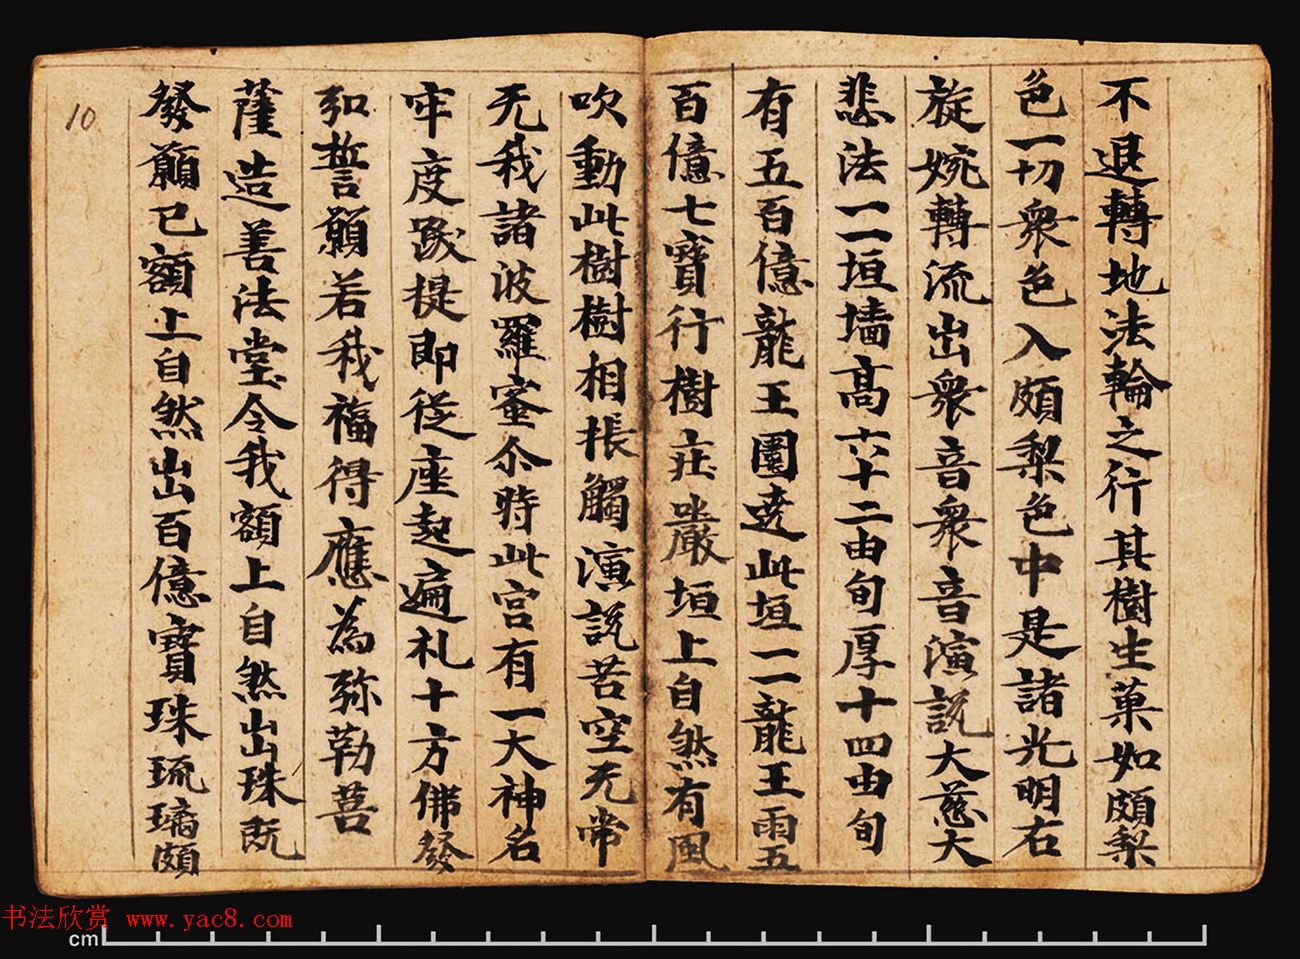 不退轉地法輪之行其樹生菓如頗梨
色一切衆色入頗梨色中是諸光明右
旋婉轉流出衆音衆音演説大慈大
悲法一一垣墻高六十二由旬厚十四由旬
有五百億龍王圍遶此垣一一龍王雨五
百億七寶行樹庄嚴垣上自然有風
吹動此樹樹相振觸演説苦空无常
无我諸波羅蜜尒時此宮有一大神名
牢度跋提即從座起遍礼十方佛發
弘誓願若我福得應為弥勒菩
薩造善法堂令我額上自然出珠既
發願已額上自然出百億寶珠琉璃頗
10
书法欣赏 www.yac8.com
cm